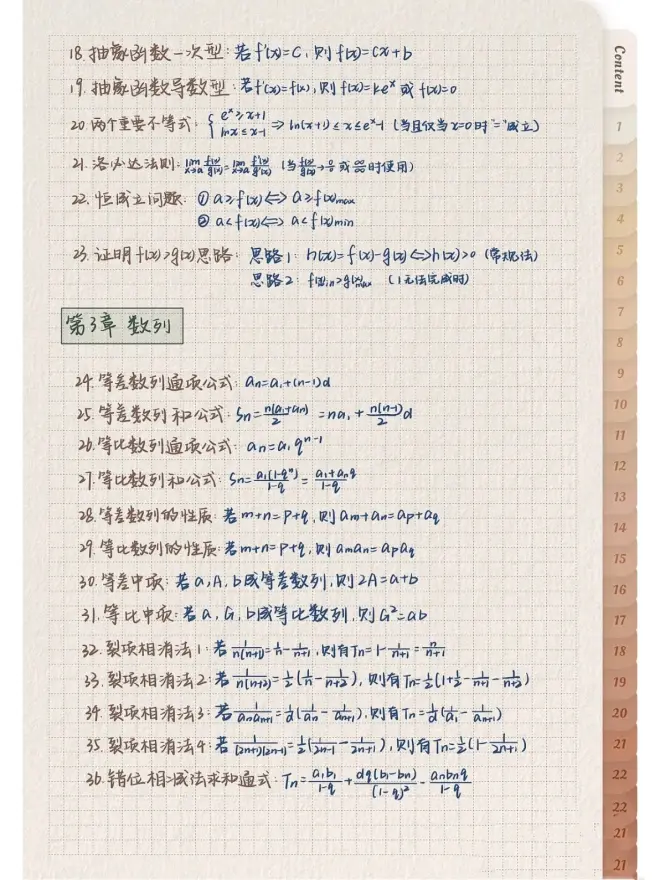 18.抽象函数一次型:若f'(x)=C,则f(x)=Cx+b
19.抽象函数导数型:若f'(x)=f(x),则f(x)=ke^x或f(x)=0
20.两个重要不等式:{e^x≥x+1 lnx≤x-1 ⇒ ln(x+1)≤x≤e^x-1(当且仅当x=0时"="成立)
21.洛必达法则:lim x→a f(x)/g(x)=lim x→a f'(x)/g'(x)(当f(x)/g(x)→0/0或∞/∞时使用)
22.恒成立问题:①a≥f(x)⇔a≥f(x)max
②a<f(x)⇔a<f(x)min
23.证明f(x)>g(x)思路:思路1:h(x)=f(x)-g(x)⇔h(x)>0(常规法)
思路2:f(x)min>g(x)max(1无法完成时)
第3章 数列
24.等差数列通项公式:an=a1+(n-1)d
25.等差数列和公式:Sn=n(a1+an)/2=na1+n(n-1)/2d
26.等比数列通项公式:an=a1q^n-1
27.等比数列和公式:Sn=a1(1-q^n)/1-q=a1+anq/1-q
28.等差数列的性质:若m+n=p+q,则am+an=ap+aq
29.等比数列的性质:若m+n=p+q,则aman=apaq
30.等差中项:若a,A,b成等差数列,则2A=a+b
31.等比中项:若a,G,b成等比数列,则G²=ab
32.裂项相消法1:若1/n(n+1)=1/n-1/n+1,则有Tn=1-1/n+1=n/n+1
33.裂项相消法2:若1/n(n+2)=1/2(1/n-1/n+2),则有Tn=1/2(1+1/2-1/n+1-1/n+2)
34.裂项相消法3:若1/anan+1=1/d(1/an-1/an+1),则有Tn=1/d(1/a1-1/an+1)
35.裂项相消法4:若1/(2n+1)(2n-1)=1/2(1/2n-1-1/2n+1),则有Tn=1/2(1-1/2n+1)
36.错位相减法求和通式:Tn=a1b1/1-q+dq(b1-bn)/(1-q)²-anbnq/1-q
Content
1
2
3
4
5
6
7
8
9
10
11
12
13
14
15
16
17
18
19
20
21
22
22
21
21